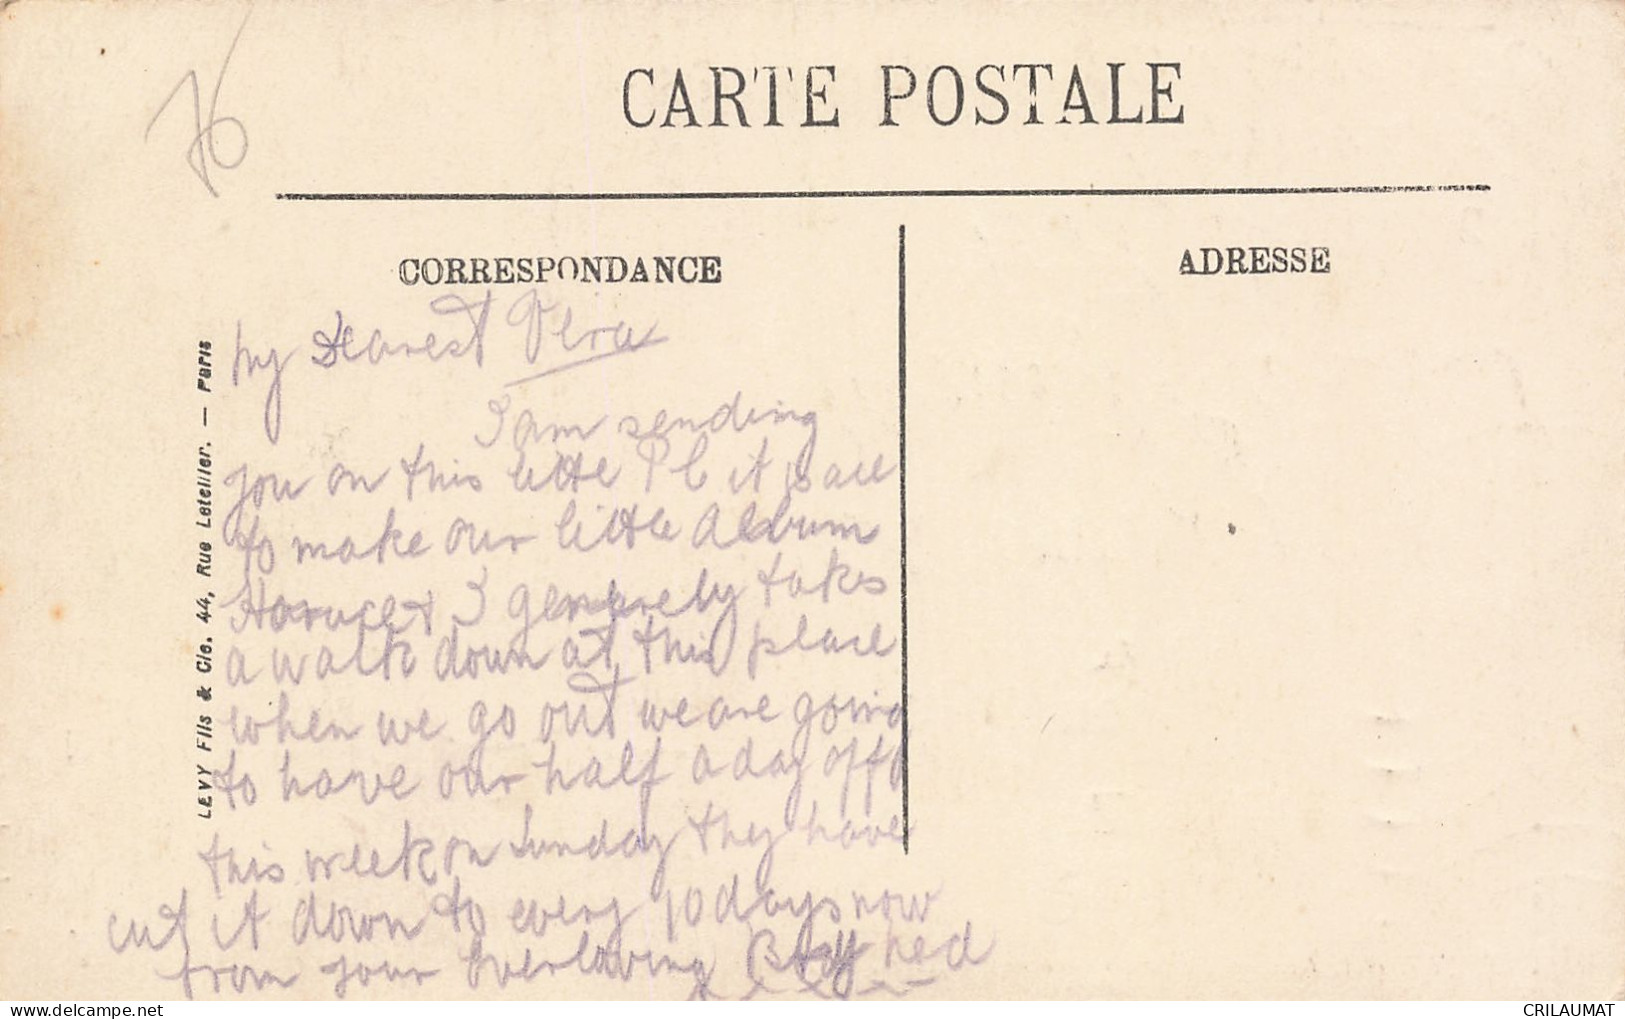 76
CARTE POSTALE
CORRESPONDANCE
ADRESSE
LEVY Fils & Cie. 44, Rue Letellier. — Paris
My Dearest Vera
I am sending
you on this little PC it is all
to make our little Album
Horace & I generely takes
a walk down at this place
when we go out we are going
to have our half a day off
this week on Sunday they have
cut it down to every 10 days now
from your Everloving
CRILAUMAT